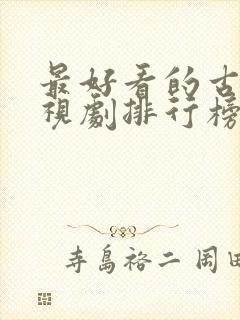 最好看的古
視劇排行榜
寺島裕二 岡田